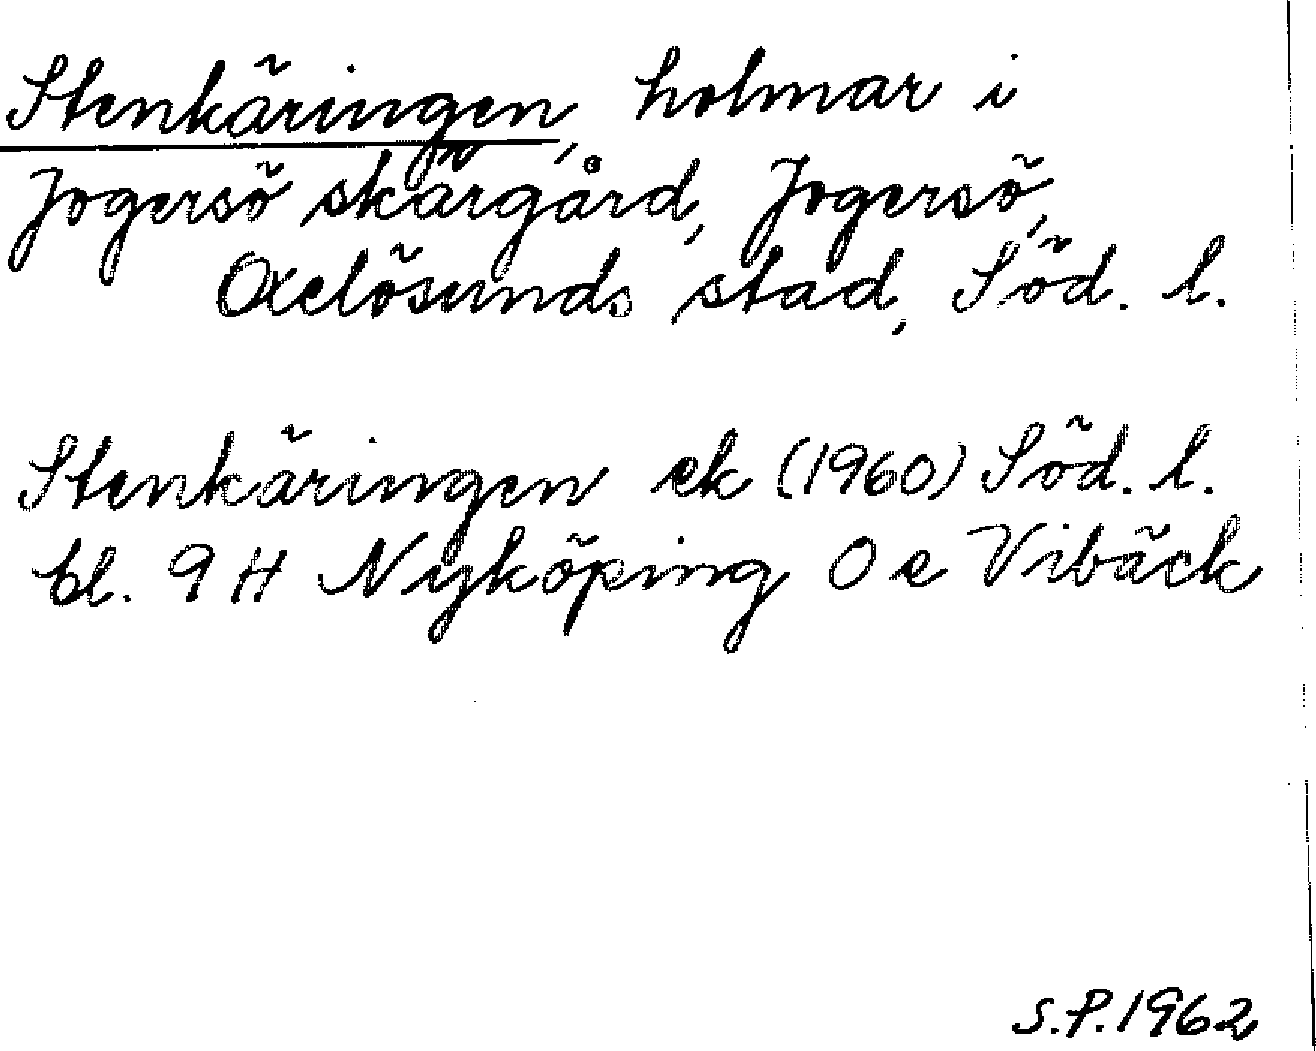 Stenkäringen, holmar i
Jogersö skärgård, Jogersö,
Oxelösunds stad, Söd. l.
Stenkäringen ek (1960) Söd. l.
bl. 9 H Nyköping 0 e Vibäck
S.P. 1962